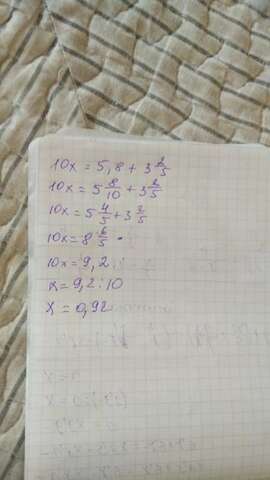 10x = 5,8 + 3 2/5
10x = 5 8/10 + 3 2/5
10x = 5 4/5 + 3 2/5
10x = 8 6/5
10x = 9,2
x = 9,2 : 10
x = 0,92